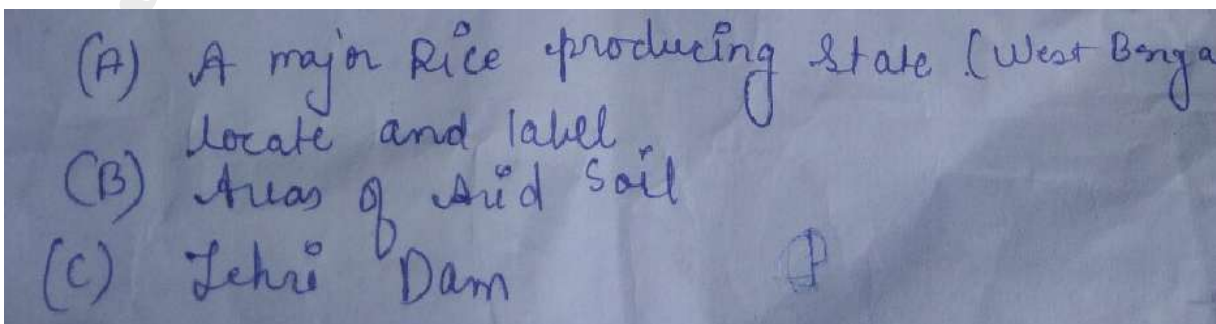 (A) A major Rice producing State (West Benga
locate and label
(B) Areas of Arid Soil
(C) Tehri Dam